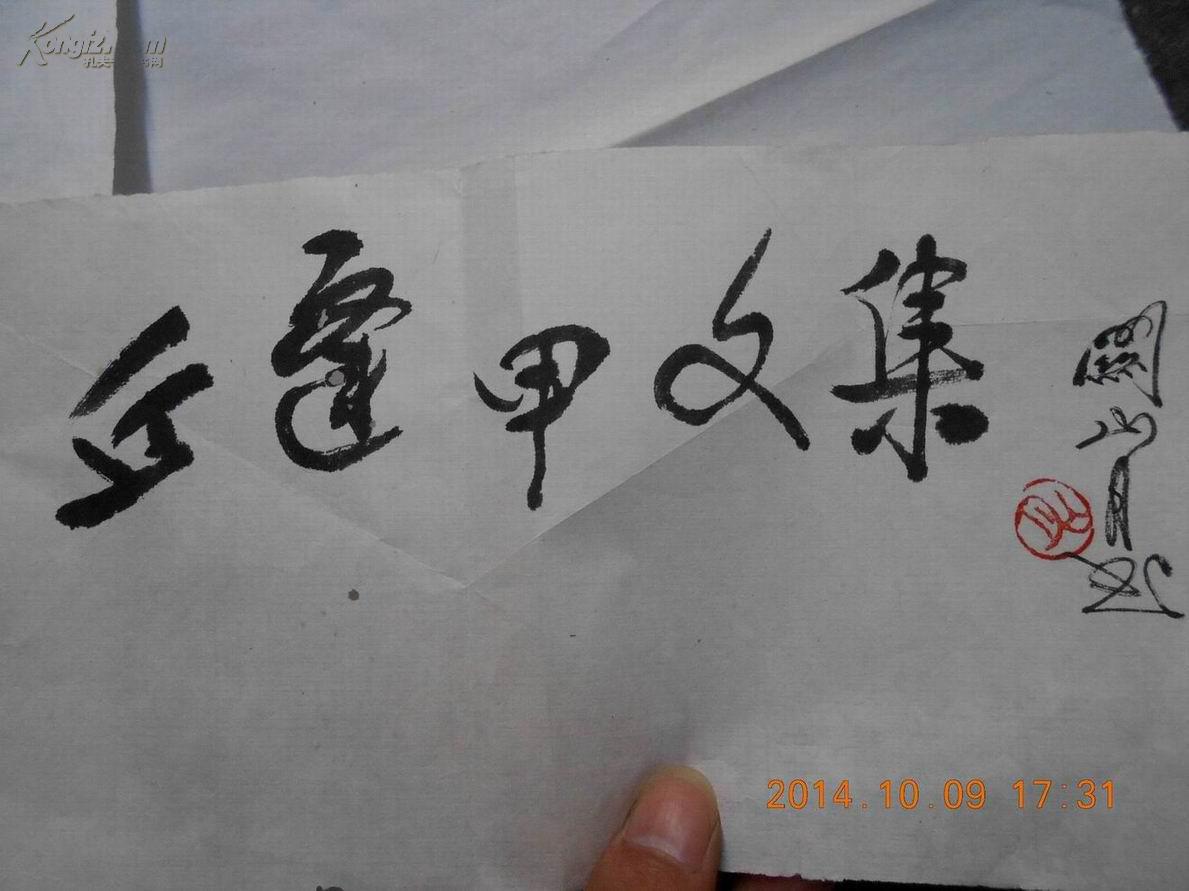 Kongfz.com
孔夫子旧书网
丘逢甲文集
關山月題
2014.10.09 17:31